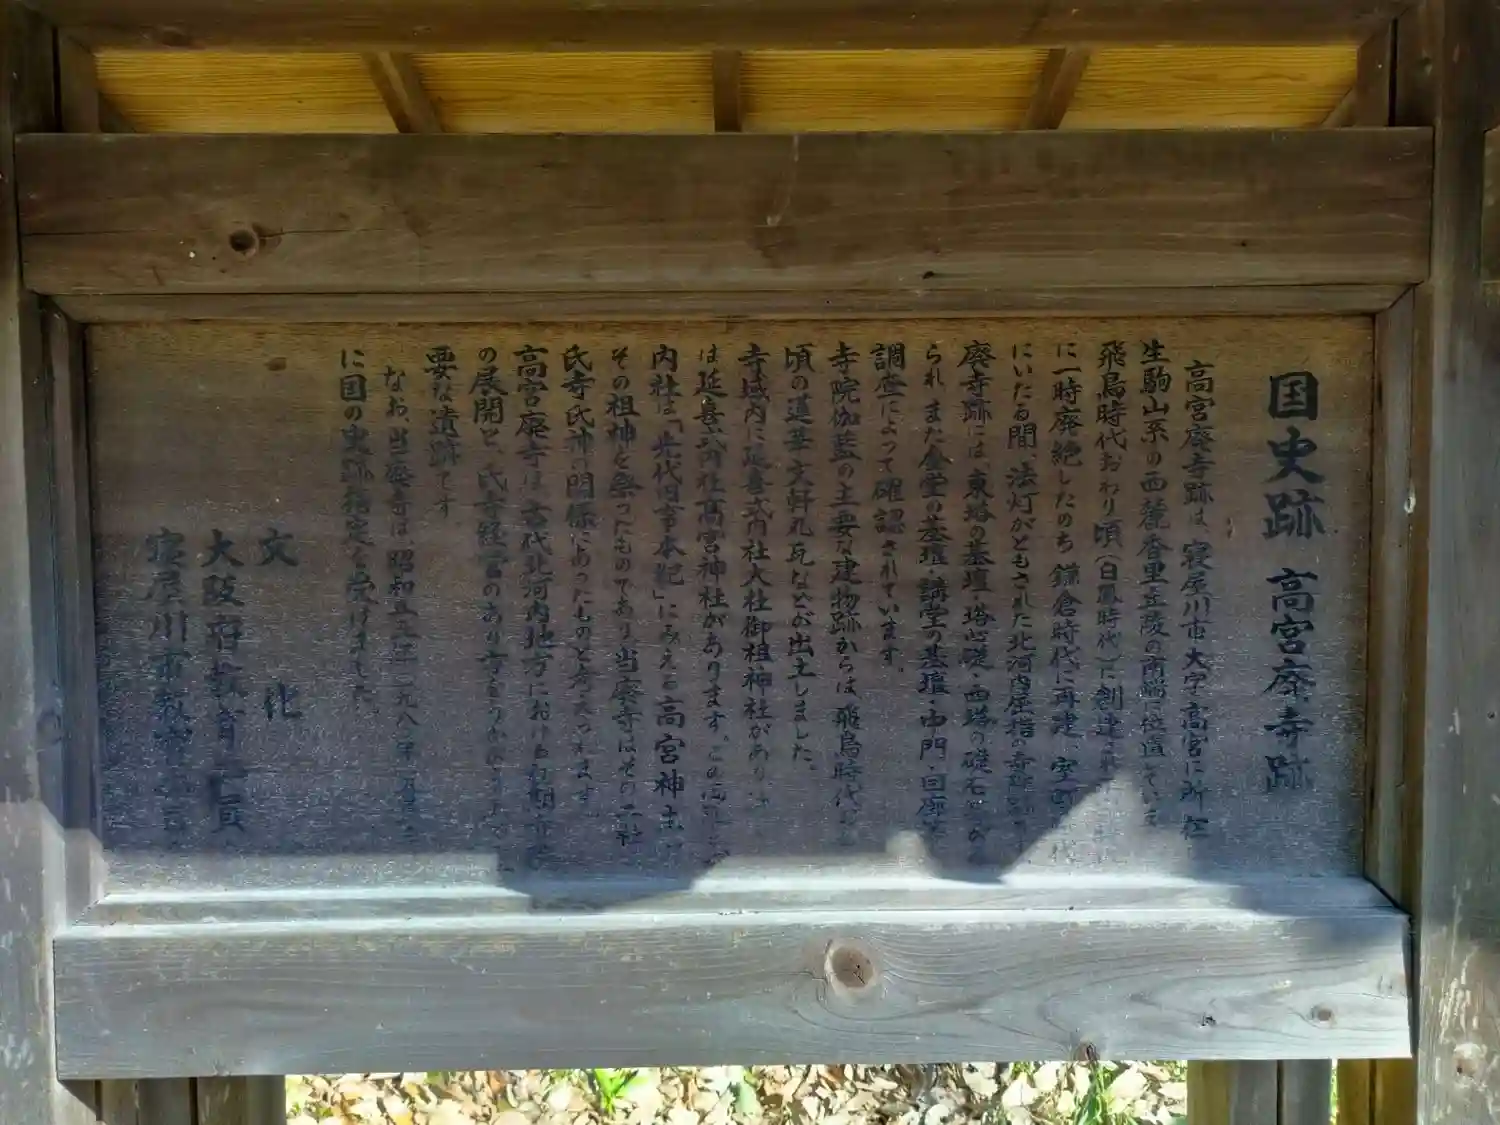 国史跡 高宮廃寺跡
高宮廃寺跡は、寝屋川市大字高宮に所在
生駒山系の西麓香里丘陵の南端に位置してい
飛鳥時代おわり頃(白鳳時代)に創建され
に一時廃絶したのち鎌倉時代に再建、室町
にいたる間、法灯がともされた北河内屈指の
廃寺跡には、東塔の基壇・塔心礎・西塔の礎石
られ、また金堂の基壇・講堂の基壇・中門・回廊
調査によって確認されています。
寺院伽藍の主要な建物跡からは飛鳥時代
頃の蓮華文軒丸瓦などが出土しました。
寺域内に延喜式内社大杜御祖神社があり、
は延喜式内社高宮神社があります。この両
内社は「先代旧事本紀」にみえる高宮神主
その祖神を祭ったものであり、当廃寺はその二社
氏寺氏神の関係にあったものと考えられます。
高宮廃寺は古代北河内地方における初期
の展開と、氏寺経営のあり方を
要な遺跡です。
なお、当廃寺は、昭和五五年(一九八〇年)
に国の史跡指定を受けました。
文 化
大阪府教育委員
寝屋川市教育委員